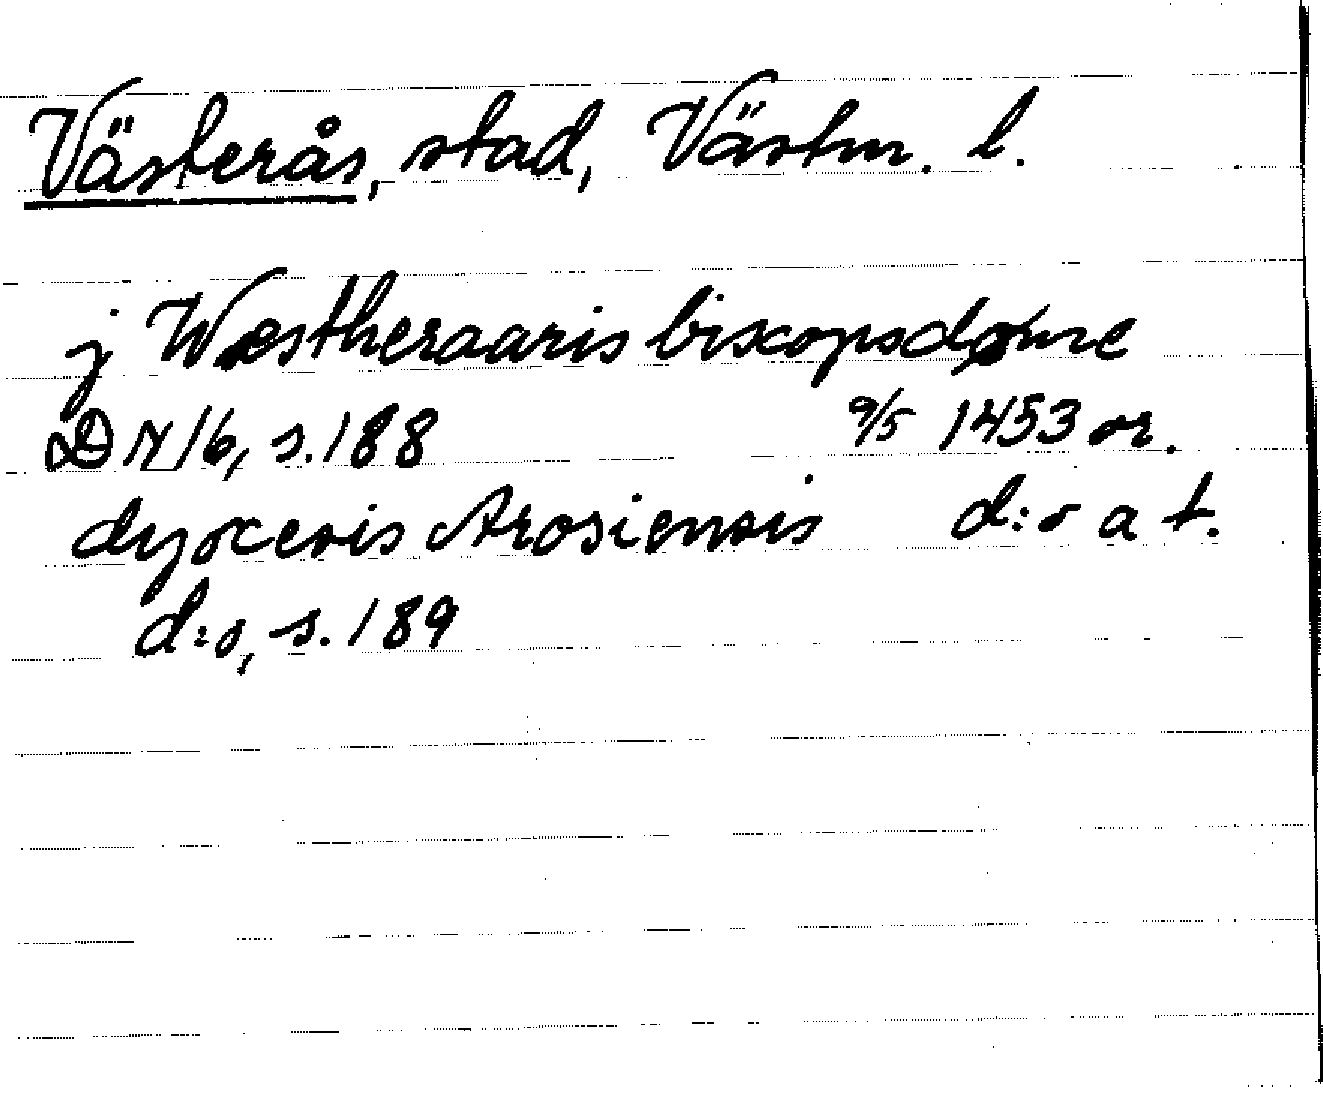 Västerås, stad, Västm. l.
j Wæstheraaris biscopsdøme
DN 16, s. 188 9/5 1453 or.
dyocesis Arosiensis d:o a t.
d:o, s. 189